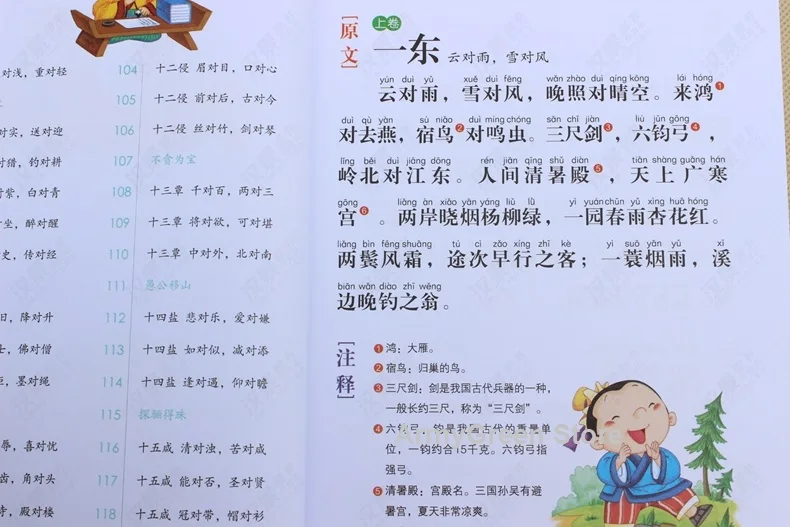 对浅，重对轻
对实，送对迎
对猎，钓对耕
对紫，白对青
对坐，醉对醒
史，传对经
日，降对升
士，佛对僧
，墨对绳
辱，喜对忧
齿，角对头
寺，殿对楼
104 十二侵 眉对目，口对心
105 十二侵 前对后，古对今
106 十二侵 丝对竹，剑对琴
107 不贪为宝
108 十三覃 千对百，两对三
109 十三覃 将对欲，可对堪
110 十三覃 中对外，北对南
111 愚公移山
112 十四盐 悲对乐，爱对嫌
113 十四盐 如对似，减对添
114 十四盐 逢对遇，仰对瞻
115 探骊得珠
116 十五咸 清对浊，苦对咸
117 十五咸 能对否，圣对贤
118 十五咸 冠对带，帽对衫
[原文]
上卷
一东 云对雨，雪对风
yún duì yǔ xuě duì fēng wǎn zhào duì qíng kōng lái hóng
云对雨，雪对风，晚照对晴空。来鸿❶
duì qù yàn sù niǎo duì míng chóng sān chǐ jiàn liù jūn gōng
对去燕，宿鸟❷对鸣虫。三尺剑❸，六钧弓❹，
lǐng běi duì jiāng dōng rén jiān qīng shǔ diàn tiān shàng guǎng hán
岭北对江东。人间清暑殿❺，天上广寒
gōng liǎng àn xiǎo yān yáng liǔ lǜ yì yuán chūn yǔ xìng huā hóng
宫❻。两岸晓烟杨柳绿，一园春雨杏花红。
liǎng bìn fēng shuāng tú cì zǎo xíng zhī kè yì suō yān yǔ xī
两鬓风霜，途次早行之客；一蓑烟雨，溪
biān wǎn diào zhī wēng
边晚钓之翁。
[注释]
❶ 鸿：大雁。
❷ 宿鸟：归巢的鸟。
❸ 三尺剑：剑是我国古代兵器的一种，
一般长约三尺，称为“三尺剑”。
❹ 六钧弓：钧是我国古代的重量单
位，一钧约合15千克。六钧弓指
强弓。
❺ 清暑殿：宫殿名。三国孙吴有避
暑宫，夏天非常凉爽。
AmyGreen Store